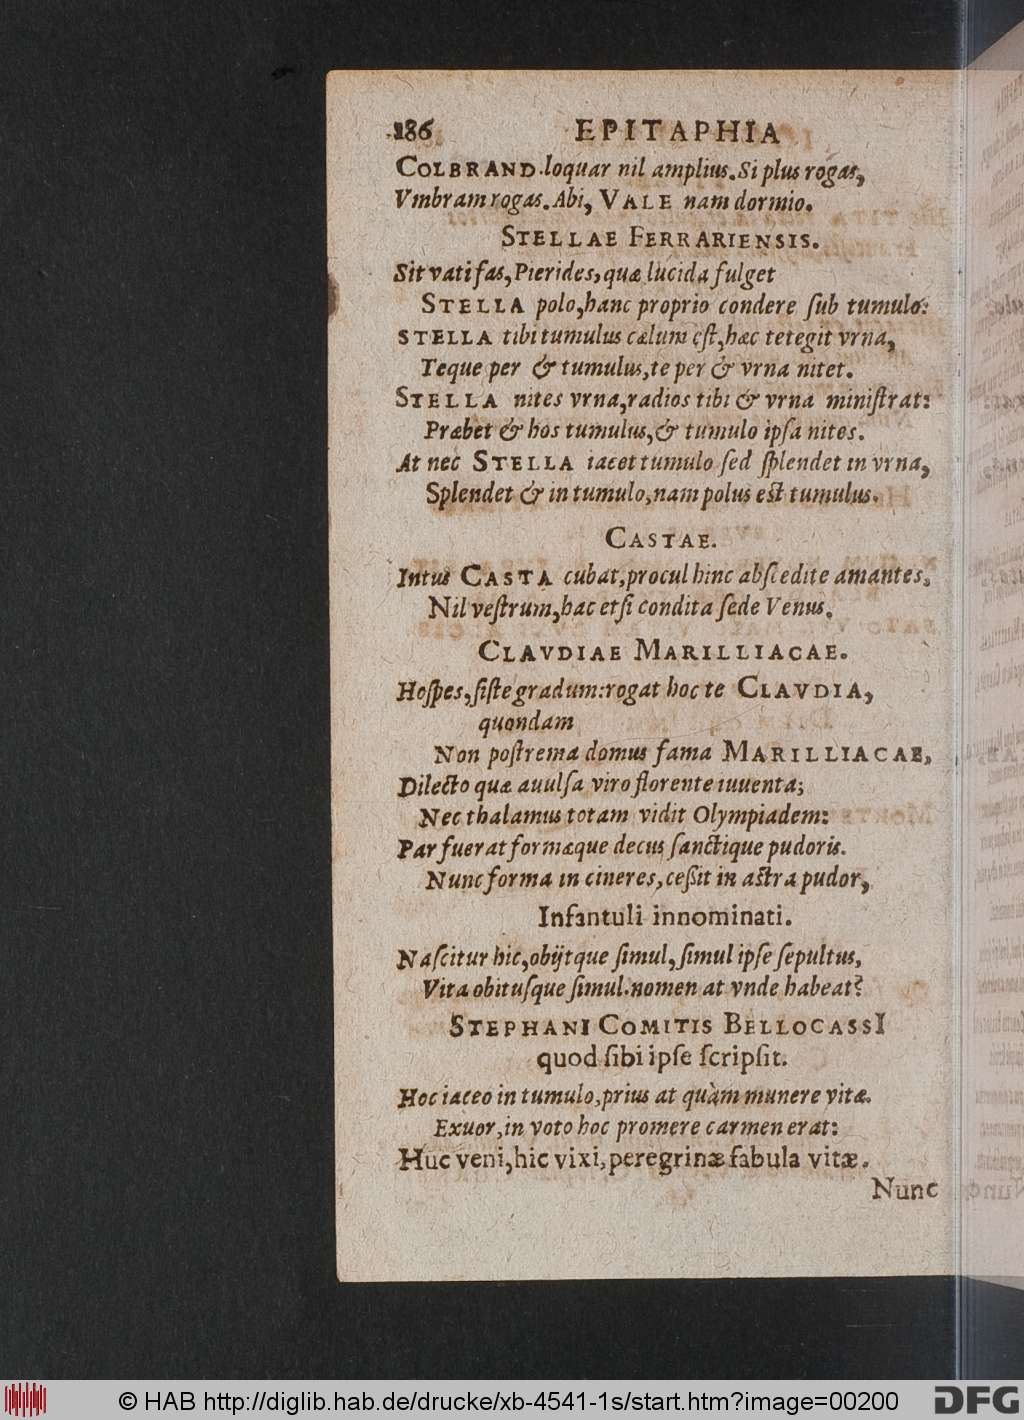 186 EPITAPHIA
COLBRAND. loquar nil amplius. Si plus rogas,
Vmbram rogas. Abi, VALE nam dormio.
STELLAE FERRARIENSIS.
Sit vati fas, Pierides, quæ lucida fulget
STELLA polo, hanc proprio condere ſub tumulo:
STELLA tibi tumulus cælum eſt, hæc te tegit vrna,
Teque per & tumulus, te per & vrna nitet.
STELLA nites vrna, radios tibi & vrna miniſtrat:
Præbet & hos tumulus, & tumulo ipſa nites.
At nec STELLA iacet tumulo ſed ſplendet in vrna,
Splendet & in tumulo, nam polus est tumulus.
CASTAE.
Intus CASTA cubat, procul hinc abſcedite amantes,
Nil veſtrum, hac etſi condita ſede Venus.
CLAVDIAE MARILLIACAE.
Hoſpes, ſiſte gradum: rogat hoc te CLAVDIA,
quondam
Non poſtrema domus fama MARILLIACAE,
Dilecto quæ auulſa viro florente iuuenta;
Nec thalamus totam vidit Olympiadem:
Par fuerat formæque decus ſanctique pudoris.
Nunc forma in cineres, ceſsit in astra pudor,
Infantuli innominati.
Naſcitur hic, obijtque ſimul, ſimul ipſe ſepultus,
Vita obituſque ſimul. nomen at vnde habeat?
STEPHANI COMITIS BELLOCASSI
quod ſibi ipſe ſcripſit.
Hoc iaceo in tumulo, prius at quàm munere vitæ.
Exuor, in voto hoc promere carmen erat:
Huc veni, hic vixi, peregrinæ fabula vitæ.
Nunc
© HAB http://diglib.hab.de/drucke/xb-4541-1s/start.htm?image=00200
DFG